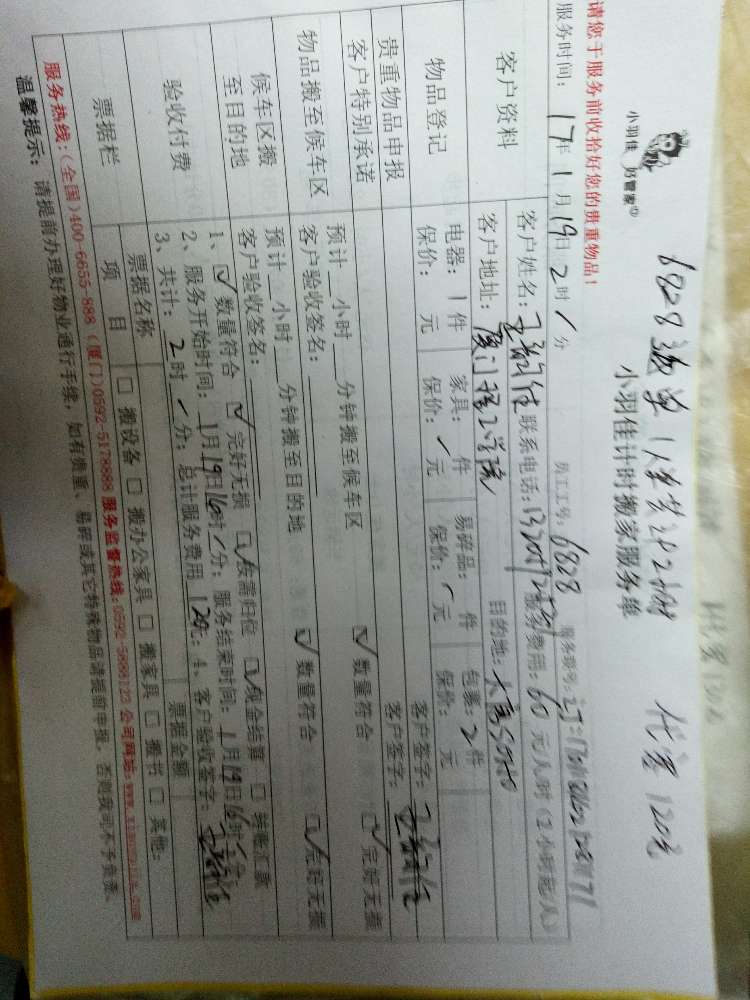 小羽佳 好管家
小羽佳计时搬家服务单
代签 120元
请您于服务前收拾好您的贵重物品!
服务时间: 17年 1月19日 2时 / 分 员工工号: 6828 服务部号:
客户资料
客户姓名: 联系电话: 服务费用: 60 元/小时(2小时起/人)
客户地址: 厦门理工学院 目的地:
物品登记
电器: 1件 家具: 件 易碎品: 件 包裹: 2件
保价: 元 保价: / 元 保价: / 元 保价: 元
贵重物品申报 客户签字:
客户特别承诺 客户签字:
物品搬至候车区
预计 小时 分钟搬至候车区 ☑ 数量符合 ☑ 完好无损
客户验收签名:
候车区搬至目的地
预计 小时 分钟搬至目的地 ☑ 数量符合 ☑ 完好无损
客户验收签名:
验收付费
1、☑ 数量符合 ☑ 完好无损 ☑ 按需归位 ☑ 现金结算 □ 转账汇款
2、服务开始时间: 1月19日16时 / 分; 服务结束时间: 1月19日
3、共计: 2时 / 分; 总计服务费用 120元; 4、客户验收签字:
票据栏
票据名称 票据金额
项目 □ 搬设备 □ 搬办公家具 □ 搬家具 □ 搬书 □ 其他:
服务热线:(全国)400-6655-888 (厦门)0592-5178888 服务监督热线:0592-5888123 公司网站:
温馨提示: 请提前办理好物业通行手续, 如有贵重、易碎或其它特殊物品请提前申报, 否则我司不予负责。